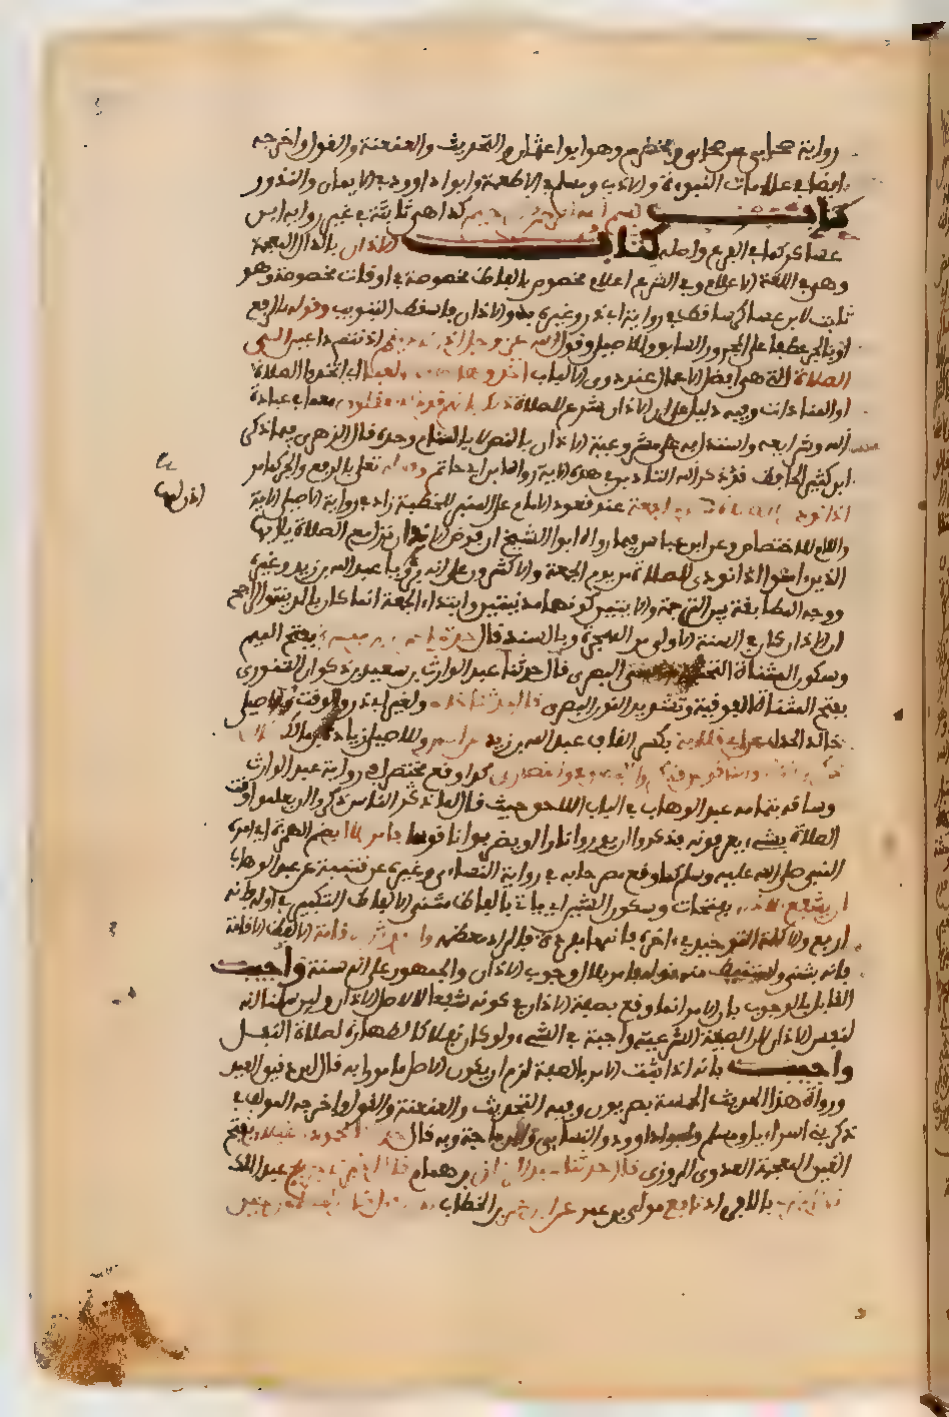 رواية صحابي عن صحابي ومخضرم وهو ابو عثمان والتحديث والعنعنة والقول واخرجه
ايضا في علامات النبوءة والادب ومسلم في الاطعمة وابو داوود في الايمان والنذور
كتاب بسم الله الرحمن الرحيم كذا هي ثابتة في غير رواية ابن
عساكر كما في الفرع واصله كتاب الاذان بالذال المعجمة
وهي في اللغة الاعلام وفي الشرع اعلام مخصوص بالفاظ مخصوصة في اوقات مخصوصة وهو
ثابت لابن عساكر ساقط في رواية ابي ذر وغيره بدو الاذان باسقاط التبويب وقوله بالرفع
او بالجر عطفا على المجرور السابق وللاصيلي وقول الله عز وجل
الصلاة التي هي افضل الاعمال عند ذوي الالباب اتخذوها ولعبا اي اتخذوا الصلاة
او المناداة وفيه دليل على ان الاذان مشروع للصلاة ذلك بانهم قوم لا يعقلون معاني عبادة
الله وشرايعه واستدل به على مشروعية الاذان بالنص لا بالمنام وحده قال الزهري فيما ذكر
ابن كثير الحافظ قد ذكر الله التاذين في هذه الاية رواه ابن ابي حاتم وقوله تعالى بالرفع والجر كما مر
اذا نودي للصلاة من يوم الجمعة عند قعود الامام على المنبر للخطبة زاد في رواية الاصيلي الاية
واللام للاختصاص وعن ابن عباس فيما رواه ابو الشيخ ان فرض الاذان نزل مع الصلاة يا ايها
الذين امنوا اذا نودي للصلاة من يوم الجمعة والاكثرون على انه برؤيا عبد الله بن زيد وغيره
ووجه المطابقة بين الترجمة والايتين كونهما مدنيتين وابتداء الجمعة انما كان بالمدينة والراجح
ان الاذان كان في السنة الاولى من الهجرة وبالسند قال حدثنا عمران بن ميسرة بفتح الميم
وسكون المثناة التحتية البصري قال حدثنا عبد الوارث بن سعيد بن ذكوان التنوري
بفتح المثناة الفوقية وتشديد النون البصري قال حدثنا خالد ولغير ابي ذر والوقت والاصيلي
خالد الحذاء عن ابي قلابة بكسر القاف عبد الله بن زيد عن انس وللاصيلي زيادة بن مالك قال
ذكروا النار والناقوس فذكروا اليهود والنصارى كذا وقع مختصرا في رواية عبد الوارث
وساقه بتمامه عبد الوهاب في الباب اللاحق حيث قال لما كثر الناس ذكروا ان يعلموا وقت
الصلاة بشيء يعرفونه فذكروا ان يوروا نارا او يضربوا ناقوسا فامر بلال بضم الهمزة اي امره
النبي صلى الله عليه وسلم كما وقع مصرحا به في رواية النساءي وغيره عن قتيبة عن عبد الوهاب
ان يشفع الاذان بفتحات وسكون الشين اي ياتي بالفاظه مثنى الا لفظ التكبير في اوله فانه
اربع والا كلمة التوحيد في اخره فانها مفردة فالمراد معظمه وان يوتر الاقامة الا لفظ الاقامة
فانه يثنى واستنبط من قوله فامر بلال وجوب الاذان والجمهور على انه سنة واجيب
القايل بالوجوب بان الامر انما وقع بصفة الاذان في كونه شفعا لا لاصل الاذان ولين سلمنا انه
لنفس الاذان لكن الصيغة الشرعية واجبة في الشيء ولو كان نفلا كالطهارة لصلاة النفل
واجيب بانه اذا ثبت الامر بالصفة لزم ان يكون الاصل مامورا به قال ابن دقيق العيد
ورواة هذا الحديث الخمسة بصريون وفيه التحديث والعنعنة والقول واخرجه المؤلف في
ذكر بني اسراءيل ومسلم وابو داوود والنساءي وابن ماجة وبه قال حدثنا محمود بن غيلان بفتح
الغين المعجمة العدوي المروزي قال حدثنا عبد الرزاق بن همام قال اخبرنا ابن جريج عبد الملك
قال اخبرني بالافراد نافع مولى بن عمر عن ابن عمر بن الخطاب